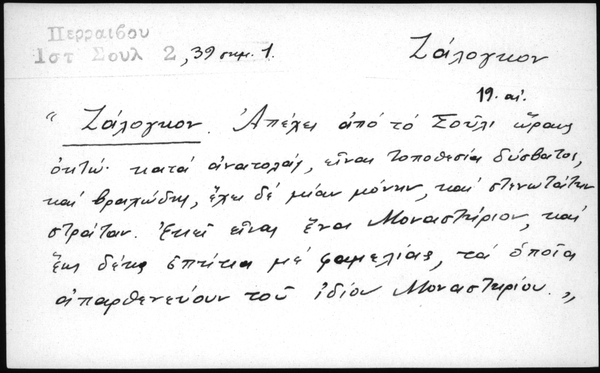 Περραιβου
Ιστ Σουλ 2, 39 σημ. 1.
Ζάλογκον
19. αἰ.
“ Ζάλογκον. Ἀπέχει ἀπό τό Σοῦλι ὥρας
ὀκτώ· κατά ἀνατολάς, εἶναι τοποθεσία δύσβατος,
καί βραχώδης, ἔχει δέ μίαν μόνην, καί στενωτάτην
στράταν. Ἐκεῖ εἶναι ἕνα Μοναστήριον, καί
ἕως δέκα σπήτια μέ φαμελίας, τά ὁποῖα
ἀπαρθενεύουν τοῦ ἰδίου Μοναστηρίου. „